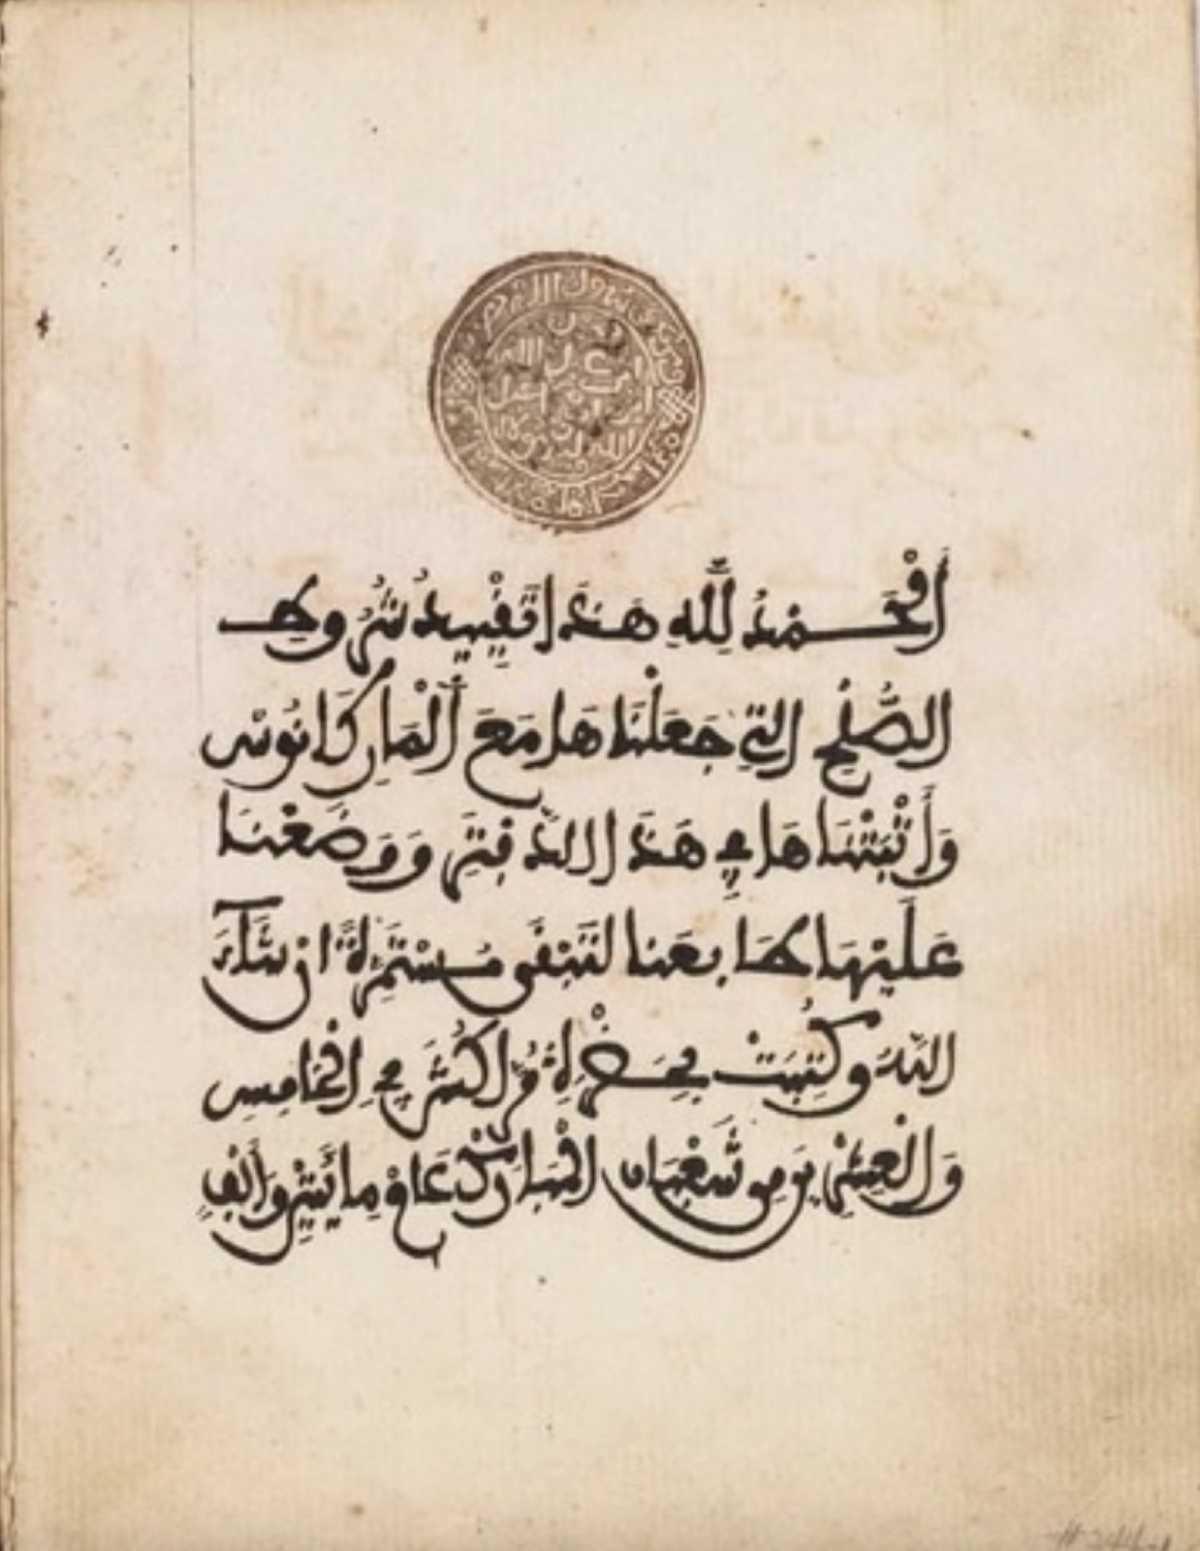 اَلْحَمْدُ لِلَّهِ هَذَا تَقْيِيدُ شُرُوطِ
الصُّلْحِ التِي جَعَلْنَاهَا مَعَ اَلْمَارِكَانُوسْ
وَأَثْبَتْنَاهَا فِي هَذَا الدَّفْتَرِ وَوَضَعْنَا
عَلَيْهَا طَابِعَنَا لِتَبْقَى مُسْتَمِرَّةً إن شَآءَ
اللَّهُ وكُتِبَتْ بِحَضْرَةِ مُرَّاكُشَ فِي الْخَامِسِ
وَالْعِشْرِينَ مِن شَعْبَان الْمُبَارَك عَامَ مِائَتَيْنِ وَأَلْفٍ